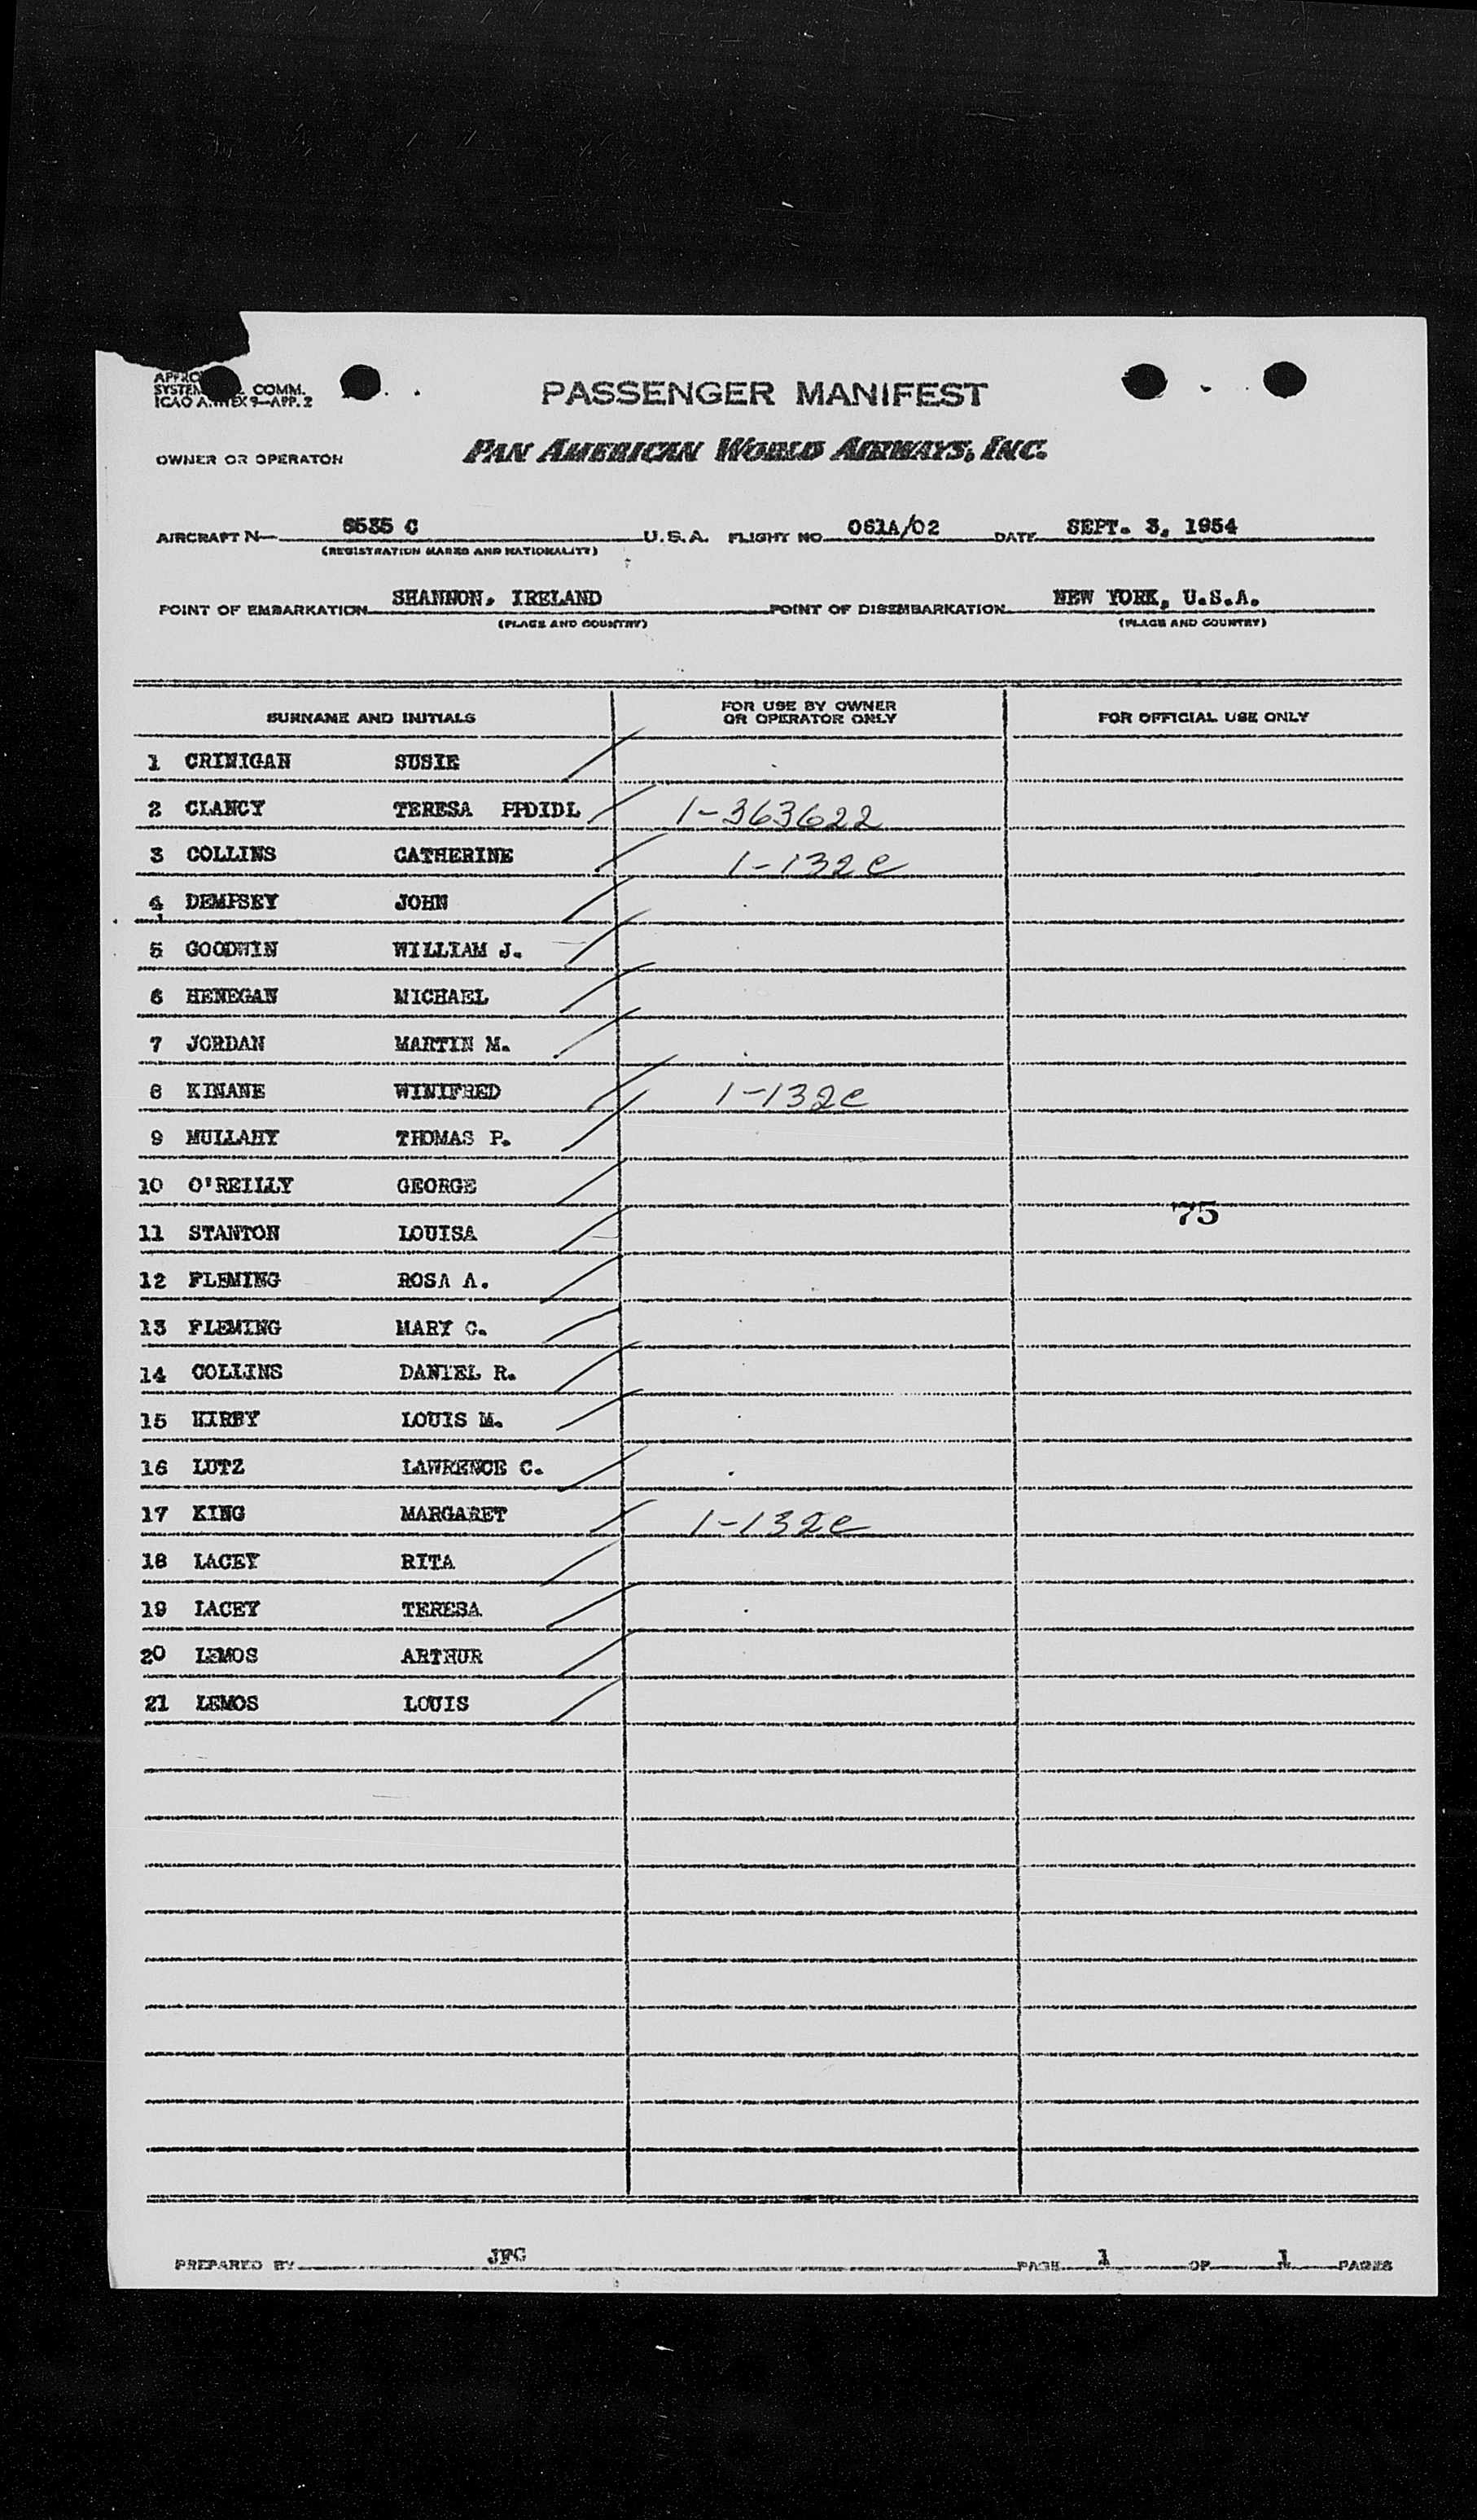 COMM.
ICAO ANNEX 9—APP. 2
PASSENGER MANIFEST
OWNER OR OPERATOR PAN AMERICAN WORLD AIRWAYS, INC.
AIRCRAFT N— 6535 C U.S.A. FLIGHT NO. 061A/02 DATE SEPT. 3, 1954
(REGISTRATION MARKS AND NATIONALITY)
POINT OF EMBARKATION SHANNON, IRELAND POINT OF DISEMBARKATION NEW YORK, U.S.A.
(PLACE AND COUNTRY) (PLACE AND COUNTRY)
SURNAME AND INITIALS FOR USE BY OWNER OR OPERATOR ONLY FOR OFFICIAL USE ONLY
1 CRINIGAN SUSIE
2 CLANCY TERESA PPDIDL 1-363622
3 COLLINS CATHERINE 1-132e
4 DEMPSEY JOHN
5 GOODWIN WILLIAM J.
6 HENEGAN MICHAEL
7 JORDAN MARTIN M.
8 KINANE WINIFRED 1-132e
9 MULLAHY THOMAS P.
10 O'REILLY GEORGE
75
11 STANTON LOUISA
12 FLEMING ROSA A.
13 FLEMING MARY C.
14 COLLINS DANIEL R.
15 KIRBY LOUIS M.
16 LUTZ LAWRENCE C.
17 KING MARGARET 1-132e
18 LACEY RITA
19 LACEY TERESA
20 LEMOS ARTHUR
21 LEMOS LOUIS
PREPARED BY JFC PAGE 1 OF 1 PAGES